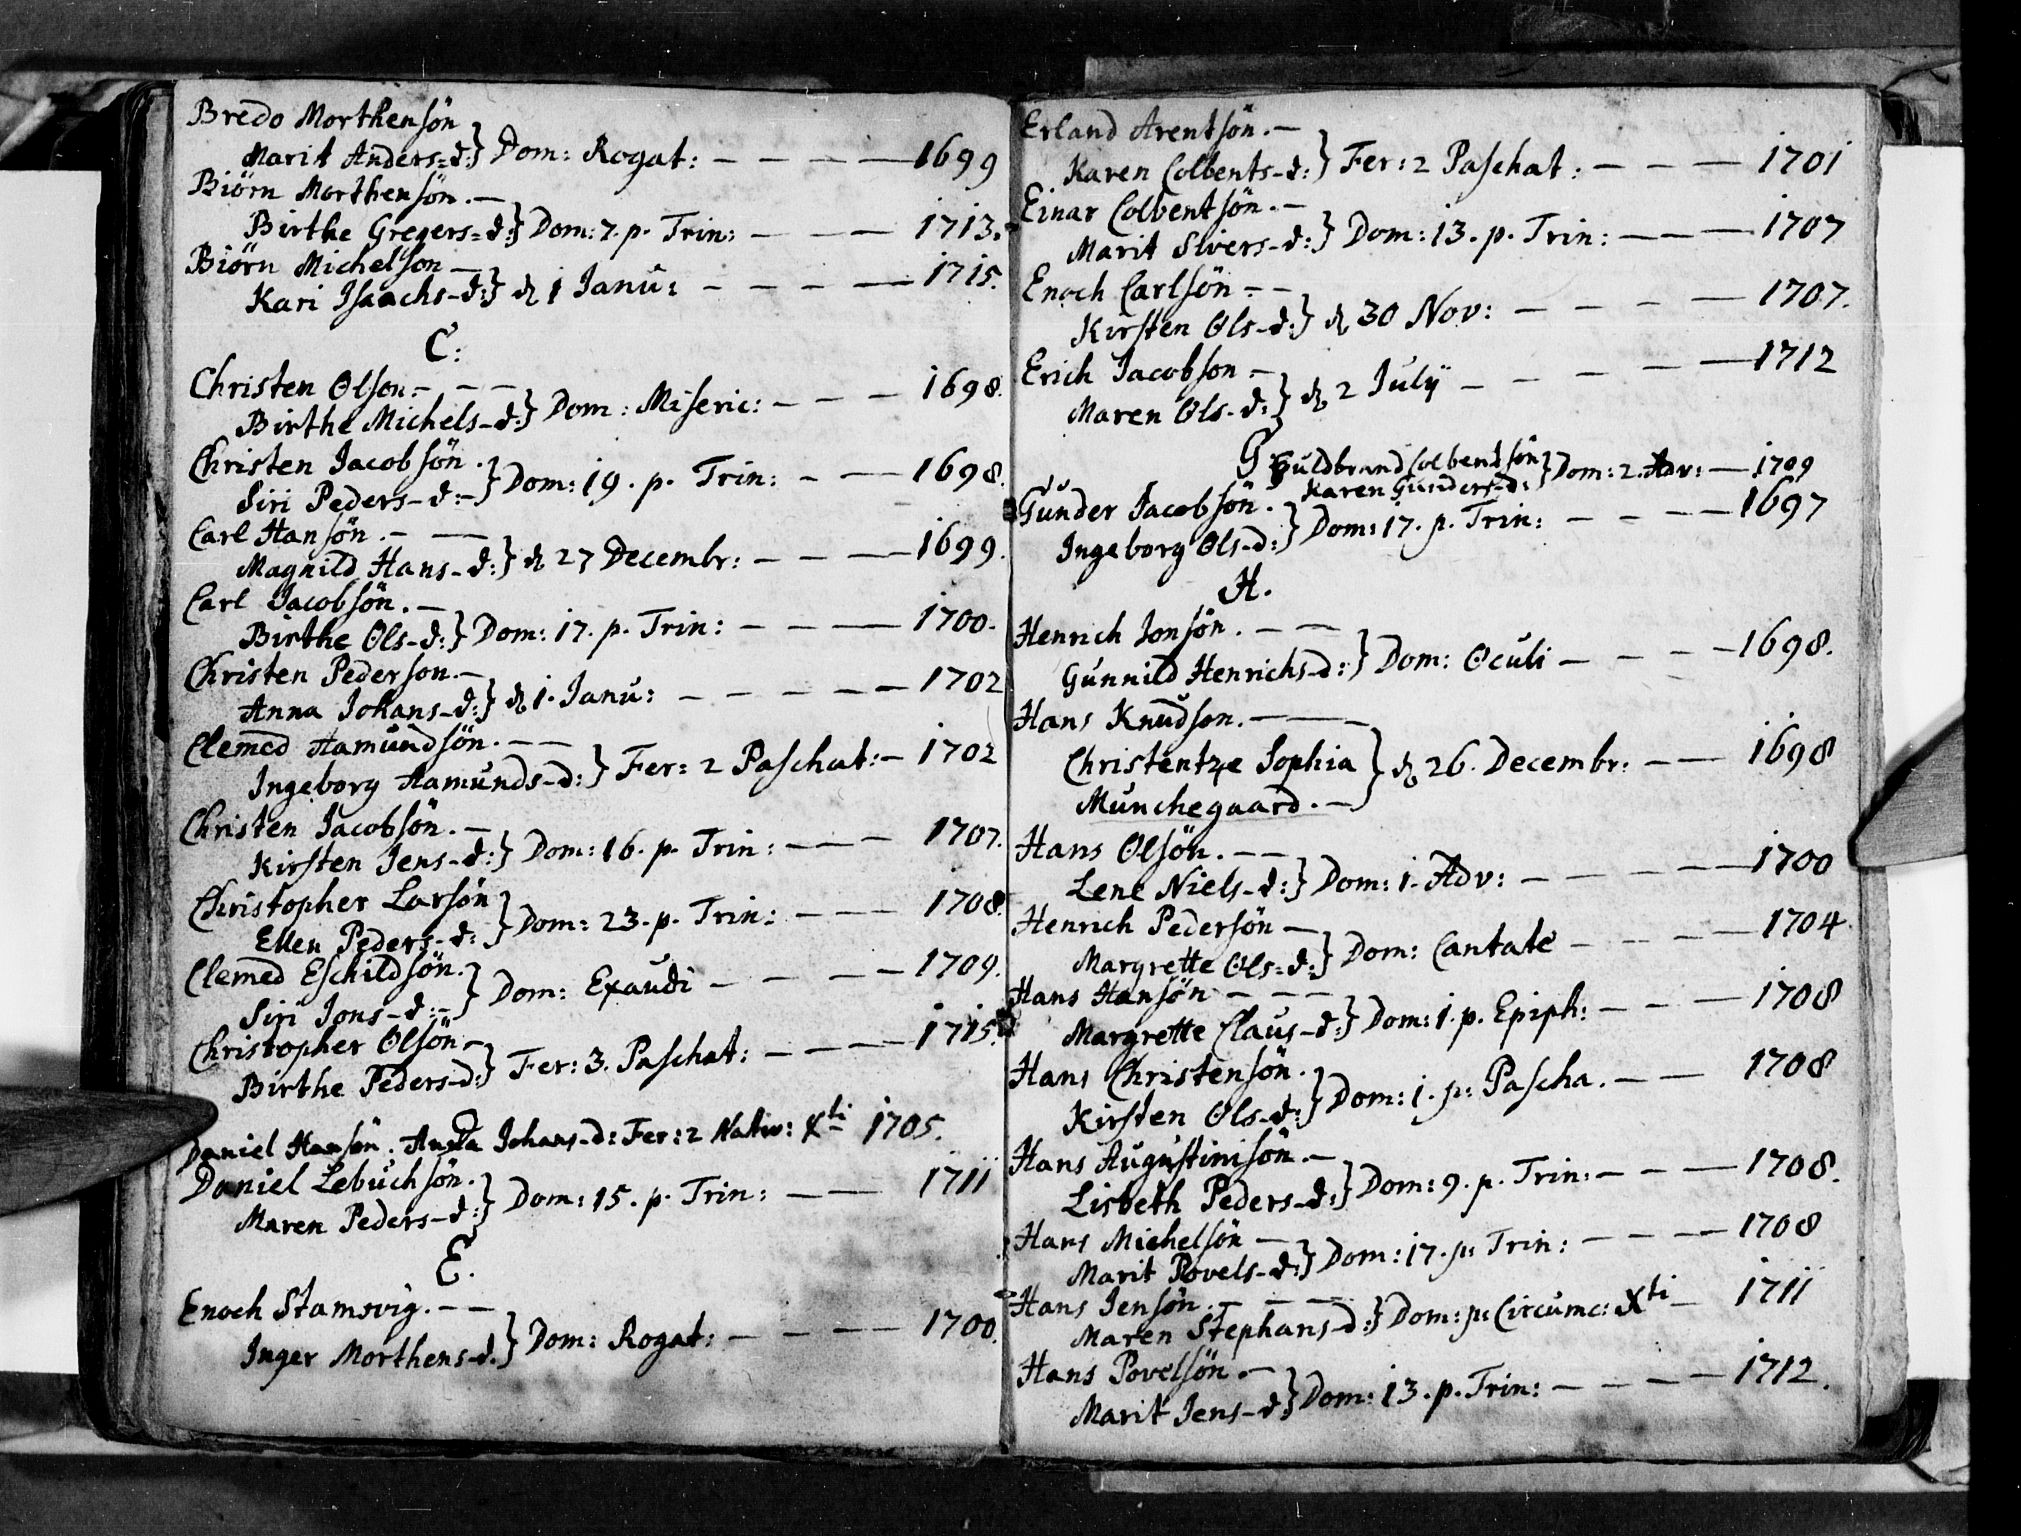 Bredo Morthensön
Marit Anders=d:} Dom: Rogat: — — — — 1699
Biörn Morthensön. —
Birthe Gregers=d:} Dom: 7. p. Trin: — — — 1713.
Biörn Michelson —
Kari Isaachs-d:} d 1 Janu: — — — — 1715.
C:
Christen Olson. — — —
Birthe Michels-d:} Dom: Miseric: — — — 1698.
Christen Jacobsön.
Siri Peders-d:-} Dom: 19. p. Trin: — — — 1698.
Carl Hansön. — —
Magnild Hans-d:} d 27 Decembr: — — — 1699.
Carl Jacobsön. —
Birthe Ols-d:} Dom: 17. p. Trin: — — — — 1700.
Christen Pederson. —
Anna Johans-d:} d 1. Janu: — — — — — 1702
Clemed Aamundsön. — —
Ingeborg Aamunds-d:} Fer: 2 Paschat: — 1702
Christen Jacobsön. —
Kirsten Jens-d:} Dom: 16. p. Trin: — — — 1707.
Christopher Larsön
Ellen Peders-d:} Dom: 23. p. Trin: — — — 1708.
Clemed Eschildsön.
Siri Jons-d:-} Dom: Exaudi — — — — 1709.
Christopher Olsön —
Birthe Peders-d:} Fer: 3. Paschat: — — — — 1715.
D
Daniel Hansön. Anna Johans-d: Fer: 2 Nativ: Xti 1705.
Daniel Lebuchsön.
Maren Peders-d:} Dom: 15. p. Trin: — — 1711
E.
Enoch Stamsvig. — —
Inger Morthens-d.} Dom: Rogat: — — — — 1700.
Erland Arentsön. —
Karen Colbents-d:} Fer: 2 Paschat: — — — 1701
Einar Colbentsön. —
Marit Sivers-d:} Dom: 13. p. Trin: — — — 1707
Enoch Carlsön — —
Kirsten Ols-d:} d 30 Nov: — — — — 1707.
Erich Jacobson —
Maren Ols-d:} d 2 Julÿ — — — — — 1712
G
Guldbrand Colbentsön
Karen Gunders-d:} Dom: 2. Adv: — 1709
Gunder Jacobsön.
Ingeborg Ols-d:} Dom: 17. p. Trin: — — — — 1697
H.
Henrich Jonsön. — —
Gunnild Henrichs-d:} Dom: Oculi — — — — 1698.
Hans Knudson. — — —
Christentze Sophia
Munchegaard. —} d 26. Decembr: — — 1698
Hans Olsön. — —
Lene Niels-d:} Dom: 1. Adv: — — — — — 1700
Henrich Pedersön —
Margrette Ols=d:} Dom: Cantate — — — — 1704.
Hans Hansön — — —
Margrette Claus-d:} Dom: 1. p. Epiph: — — — 1708
Hans Christensön.
Kirsten Ols-d:} Dom: 1. p: Pascha. — — 1708
Hans Augustinisön. —
Lisbeth Peders-d:} Dom: 9. p. Trin: — — — 1708.
Hans Michelsön —
Marit Povels-d:} Dom: 17. p: Trin: — — — — 1708
Hans Jensön. — — —
Maren Stephans-d:} Dom: p: Circumc: Xti — 1711
Hans Povelsön. —
Marit Jens-d:} Dom: 13. p. Trin: — — — — 1712.